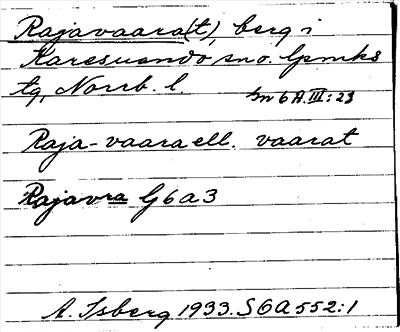 Rajavaara(t), berg i
Karesuando sno. lpmks
tg, Norrb. l.
sn 6A.III:23
Raja-vaara ell. vaarat
Rajavra G6a3
A. Isberg 1933. S6A552:1